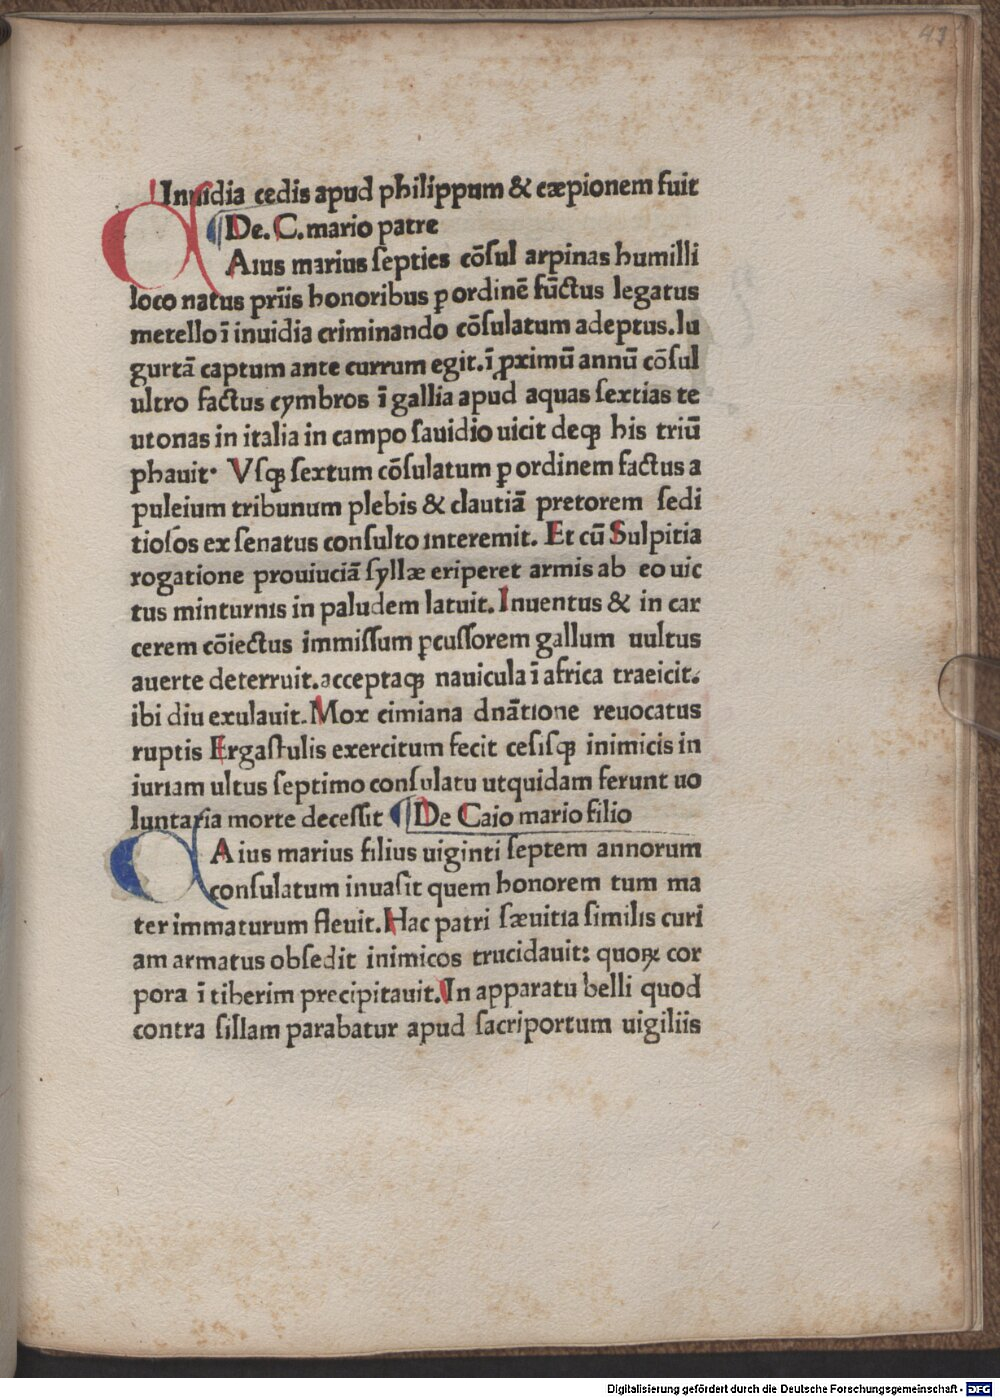 43
Inuidia cedis apud philippum & cæpionem fuit
De. C. mario patre
Aius marius septies cōsul arpinas humilli
loco natus prīis honoribus ꝑ ordinē fūctus legatus
metello ī inuidia criminando cōsulatum adeptus. Iu
gurtā captum ante currum egit. ī ꝓximū annū cōsul
ultro factus cymbros ī gallia apud aquas sextias te
utonas in italia in campo sauidio uicit deqꝫ his triū
phauit. Vsqꝫ sextum cōsulatum ꝑ ordinem factus a
puleium tribunum plebis & clautiā pretorem sedi
tiosos ex senatus consulto interemit. Et cū Sulpitia
rogatione prouiuciā syllæ eriperet armis ab eo uic
tus minturnis in paludem latuit. Inuentus & in car
cerem cōiectus immissum ꝑcussorem gallum uultus
auerte deterruit. acceptaqꝫ nauicula ī africa traeicit.
ibi diu exulauit. Mox cimiana dnātione reuocatus
ruptis Ergastulis exercitum fecit cesisqꝫ inimicis in
iuriam ultus septimo consulatu utquidam ferunt uo
luntaria morte decessit De Caio mario filio
Aius marius filius uiginti septem annorum
consulatum inuasit quem honorem tum ma
ter immaturum fleuit. Hac patri sæuitia similis curi
am armatus obsedit inimicos trucidauit: quoꝝ cor
pora ī tiberim precipitauit. In apparatu belli quod
contra sillam parabatur apud sacriportum uigiliis
Digitalisierung gefördert durch die Deutsche Forschungsgemeinschaft - DFG